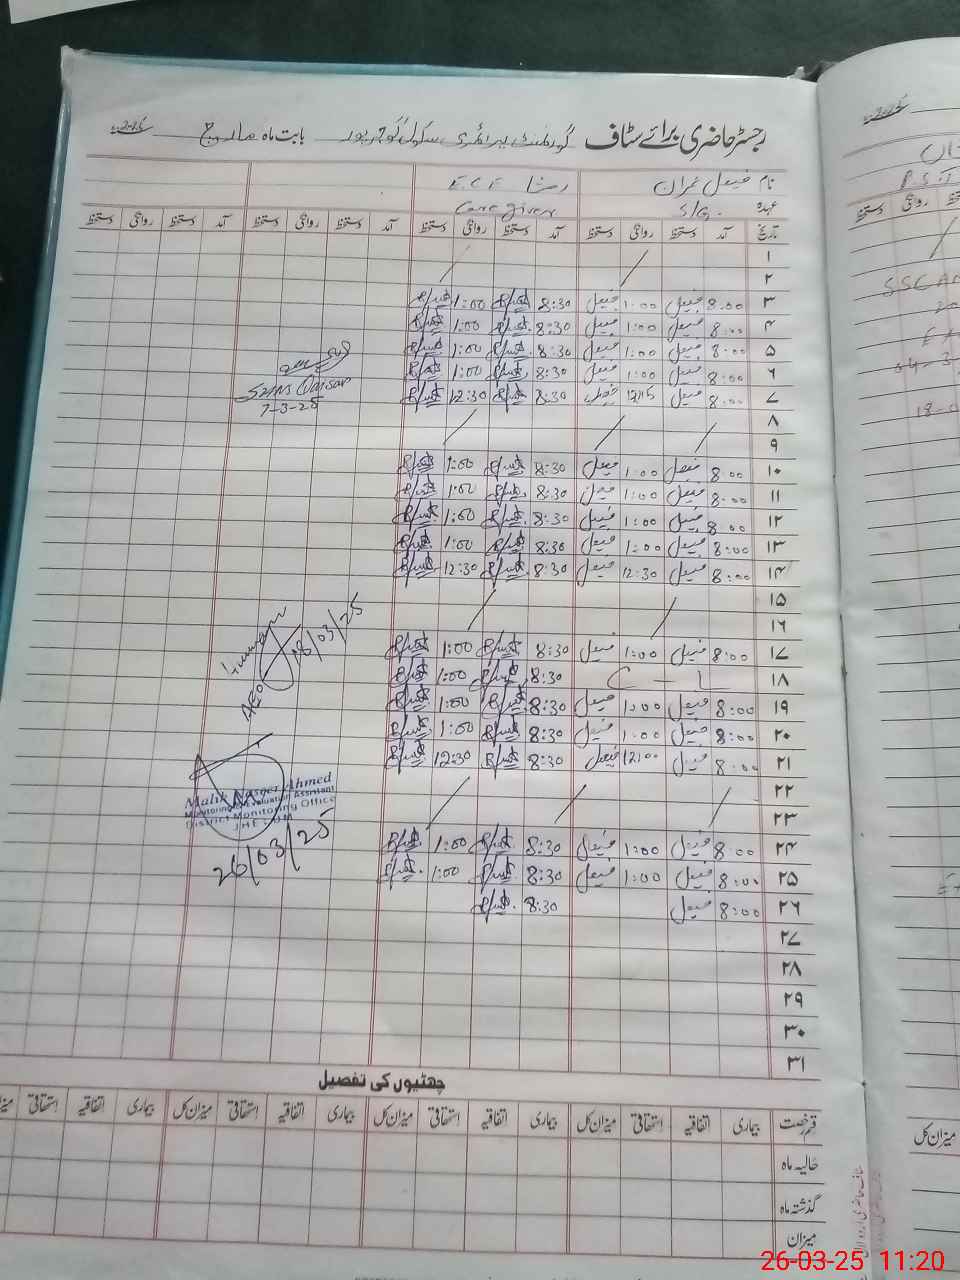 رجسٹر حاضری برائے سٹاف گورنمنٹ پرائمری سکول گوجرپور بابت ماہ مارچ 2025ء
نام فیصل عمران رمشا E.C.E
عہدہ S/G. Care giver
تاریخ آمد دستخط روانگی دستخط آمد دستخط روانگی دستخط آمد دستخط روانگی دستخط آمد دستخط روانگی دستخط
۱
۲
۳ 8:00 فیصل 1:00 فیصل 8:30 1:00
۴ 8:00 فیصل 1:00 فیصل 8:30 1:00
۵ 8:00 فیصل 1:00 فیصل 8:30 1:00
۶ 8:00 فیصل 1:00 فیصل 8:30 1:00
۷ 8:00 فیصل 12:15 فیصل 8:30 12:30
7-3-25
۸
۹
۱۰ 8:00 فیصل 1:00 فیصل 8:30 1:00
۱۱ 8:00 فیصل 1:00 فیصل 8:30 1:00
۱۲ 8:00 فیصل 1:00 فیصل 8:30 1:00
۱۳ 8:00 فیصل 1:00 فیصل 8:30 1:00
۱۴ 8:00 فیصل 12:30 فیصل 8:30 12:30
۱۵
۱۶
۱۷ 8:00 فیصل 1:00 فیصل 8:30 1:00
۱۸ C - L 8:30 1:00
۱۹ 8:00 فیصل 1:00 فیصل 8:30 1:00
۲۰ 8:00 فیصل 1:00 فیصل 8:30 1:00
۲۱ 8:00 فیصل 12:00 فیصل 8:30 12:30
AEO
18/03/25
۲۲
۲۳
۲۴ 8:00 فیصل 1:00 فیصل 8:30 1:00
۲۵ 8:00 فیصل 1:00 فیصل 8:30 1:00
۲۶ 8:00 فیصل 8:30
Malik Naseer Ahmed
Monitoring & Evaluation Assistant
District Monitoring Office
JHELUM
26/03/25
۲۷
۲۸
۲۹
۳۰
۳۱
چھٹیوں کی تفصیل
قسم رخصت بیماری اتفاقیہ استحقاقی میزان کل بیماری اتفاقیہ استحقاقی میزان کل بیماری اتفاقیہ استحقاقی میزان کل بیماری اتفاقیہ استحقاقی
حالیہ ماہ
گذشتہ ماہ
میزان
میزان کل
26-03-25 11:20